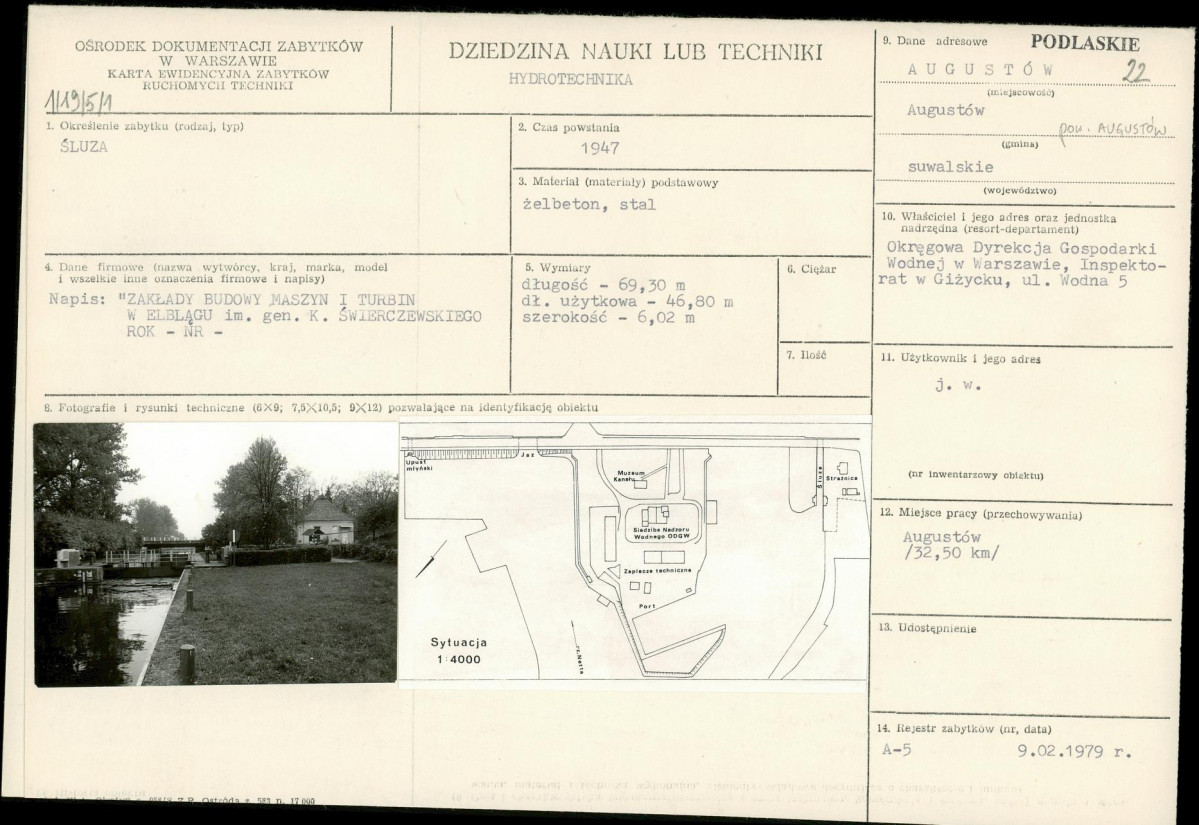 OŚRODEK DOKUMENTACJI ZABYTKÓW
W WARSZAWIE
KARTA EWIDENCYJNA ZABYTKÓW
RUCHOMYCH TECHNIKI
1/19/5/1
DZIEDZINA NAUKI LUB TECHNIKI
HYDROTECHNIKA
1. Określenie zabytku (rodzaj, typ)
ŚLUZA
2. Czas powstania
1947
3. Materiał (materiały) podstawowy
żelbeton, stal
4. Dane firmowe (nazwa wytwórcy, kraj, marka, model
i wszelkie inne oznaczenia firmowe i napisy)
Napis: "ZAKŁADY BUDOWY MASZYN I TURBIN
W ELBLĄGU im. gen. K. ŚWIERCZEWSKIEGO
ROK - NR -
5. Wymiary
długość - 69,30 m
dł. użytkowa - 46,80 m
szerokość - 6,02 m
6. Ciężar
7. Ilość
8. Fotografie i rysunki techniczne (6X9; 7,5X10,5; 9X12) pozwalające na identyfikację obiektu
Upust
młyński
Jaz
Muzeum
Kanału
Siedziba Nadzoru
Wodnego ODGW
Zaplecze techniczne
Port
Śluza
Strażnica
rz. Netta
Sytuacja
1:4000
9. Dane adresowe PODLASKIE
AUGUSTÓW 22
(miejscowość)
Augustów
pow. AUGUSTÓW
(gmina)
suwalskie
(województwo)
10. Właściciel i jego adres oraz jednostka
nadrzędna (resort-departament)
Okręgowa Dyrekcja Gospodarki
Wodnej w Warszawie, Inspekto-
rat w Giżycku, ul. Wodna 5
11. Użytkownik i jego adres
j. w.
(nr inwentarzowy obiektu)
12. Miejsce pracy (przechowywania)
Augustów
/32,50 km/
13. Udostępnienie
14. Rejestr zabytków (nr, data)
A-5 9.02.1979 r.
Z.P. Ostróda z. 583 n. 17 000